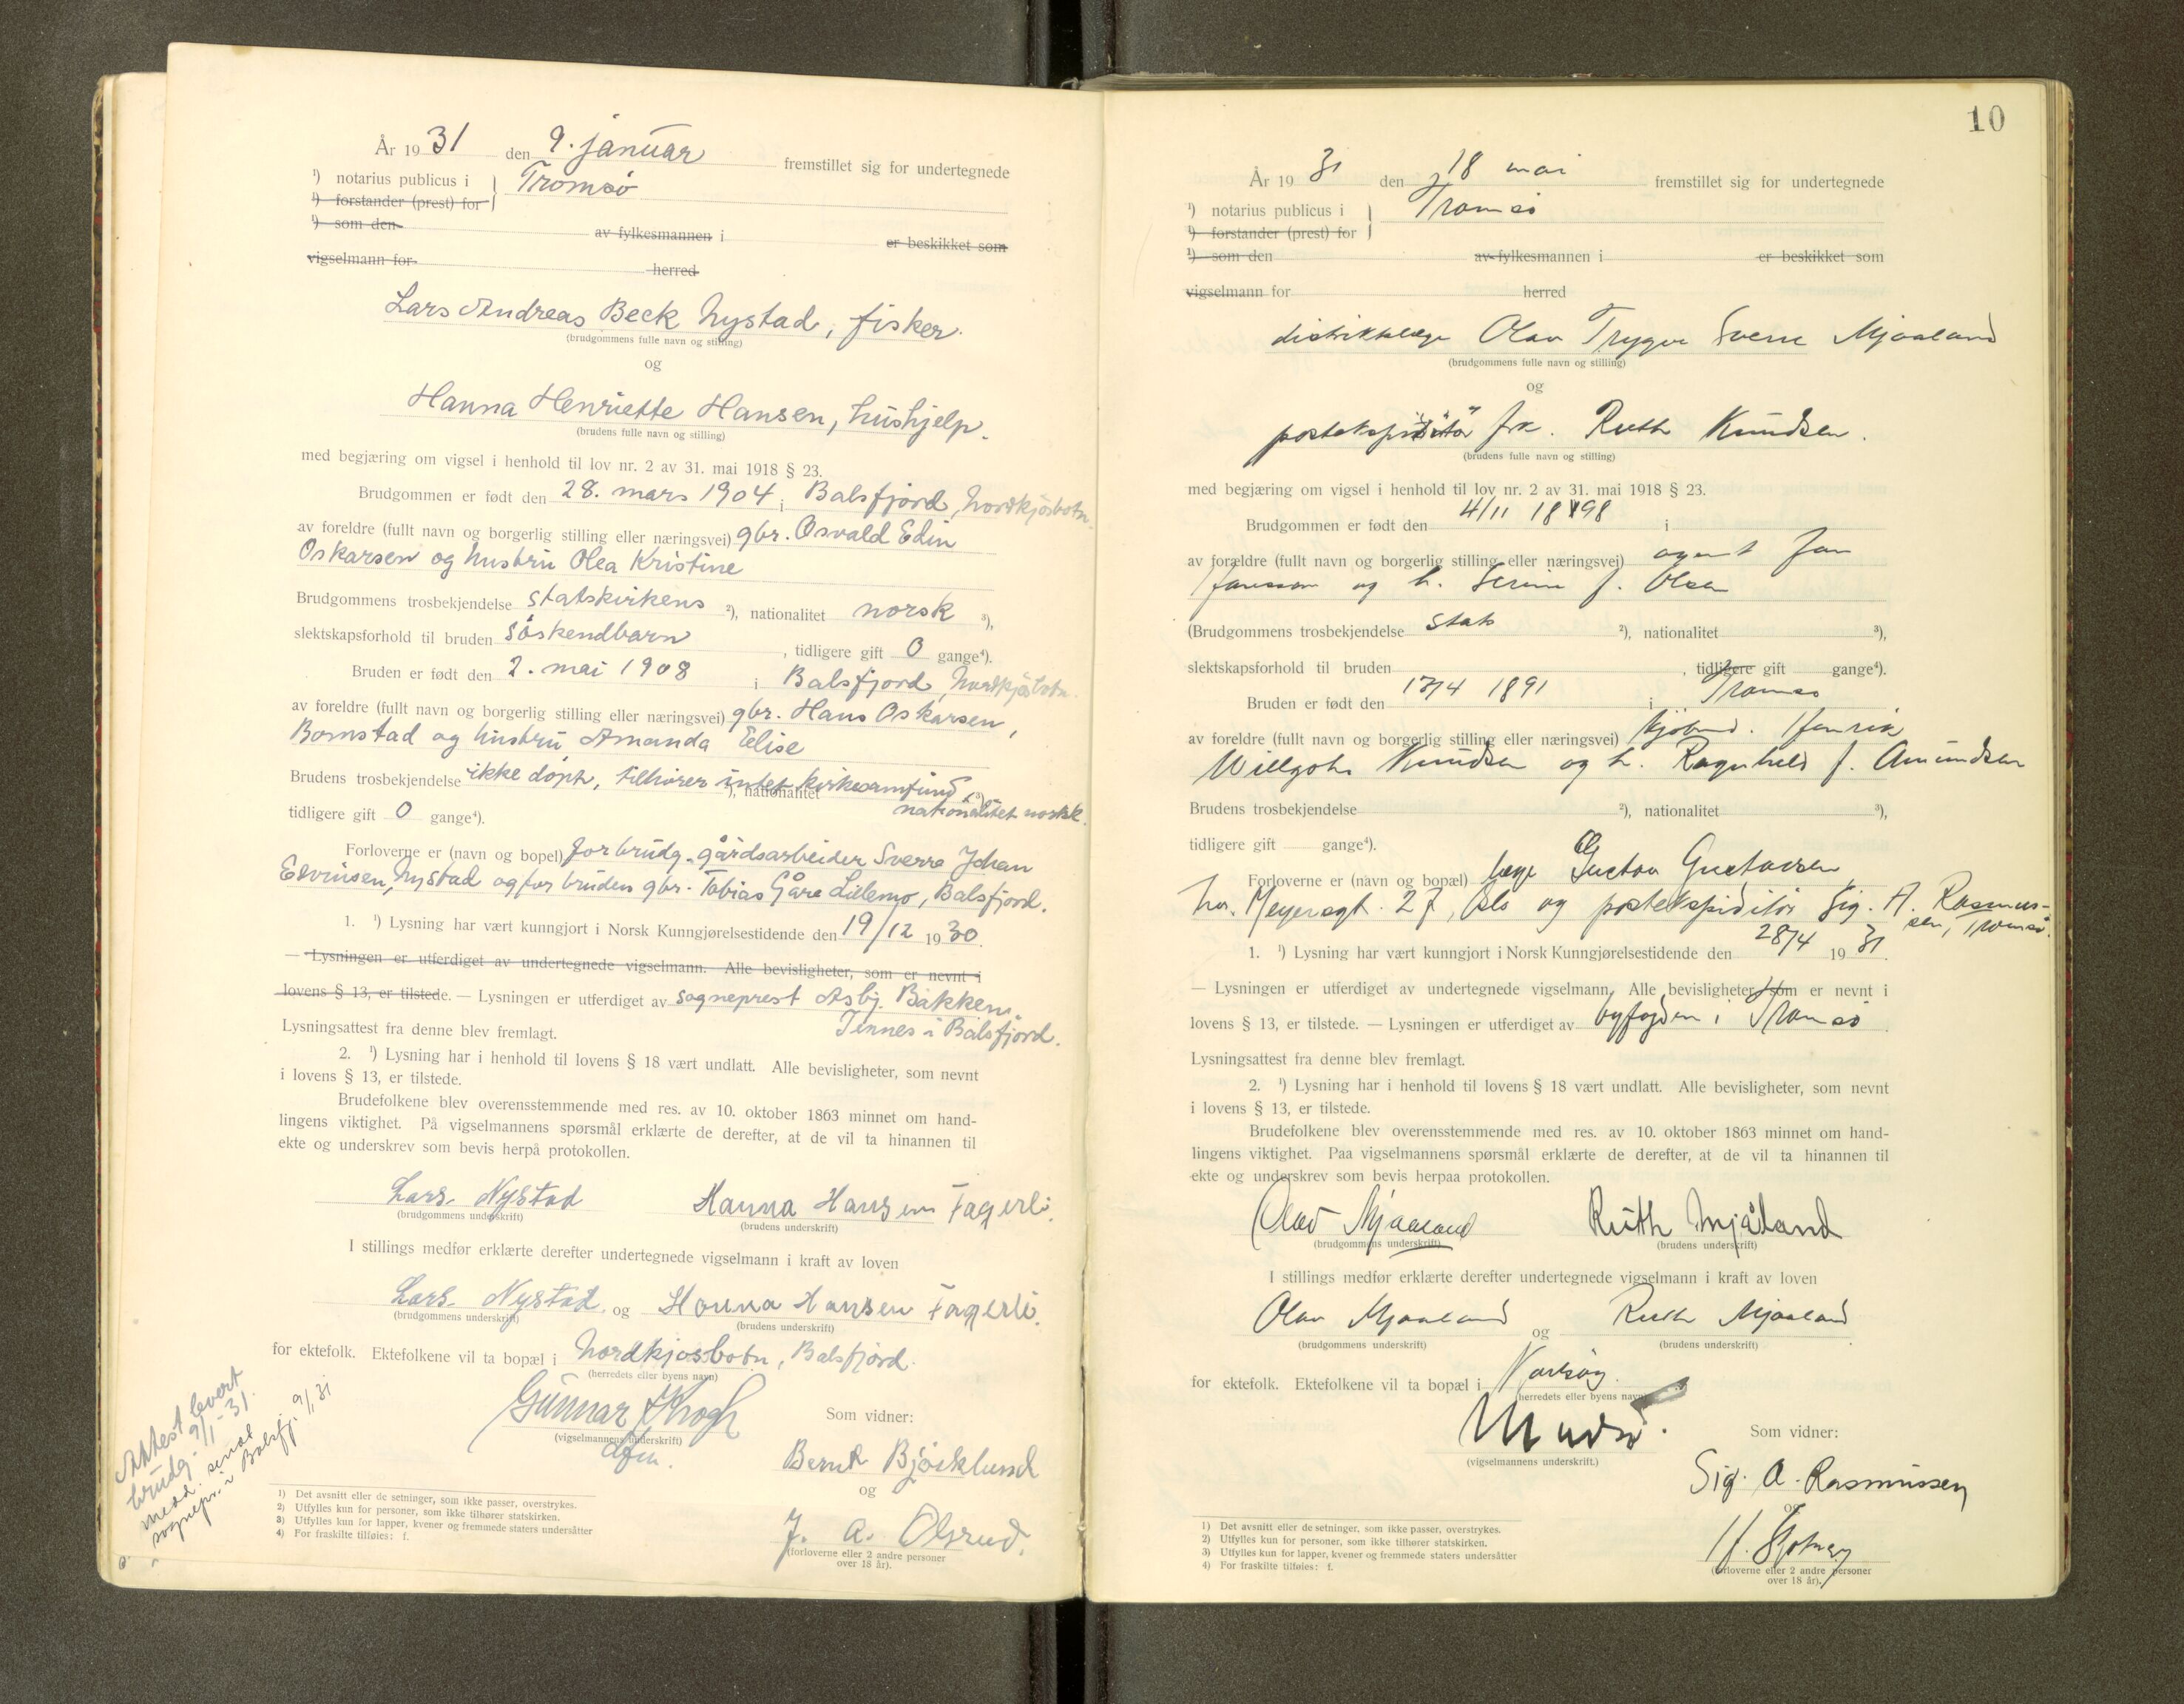 År 1931 den 9. januar fremstillet sig for undertegnede
¹) notarius publicus i } Tromsø
¹) forstander (prest) for
¹) som den av fylkesmannen i er beskikket som
vigselmann for herred
Lars Andreas Beck Nystad, fisker.
(brudgommens fulle navn og stilling)
og
Hanna Henriette Hansen, hushjelp.
(brudens fulle navn og stilling)
med begjæring om vigsel i henhold til lov nr. 2 av 31. mai 1918 § 23.
Brudgommen er født den 28. mars 1904 i Balsfjord, Nordkjosbotn.
av foreldre (fullt navn og borgerlig stilling eller næringsvei) gbr. Osvald Edin
Oskarsen og hustru Olea Kristine
Brudgommens trosbekjendelse statskirkens ²), nationalitet norsk ³),
slektskapsforhold til bruden søskendbarn, tidligere gift 0 gange⁴).
Bruden er født den 2. mai 1908 i Balsfjord, Nordkjosbotn.
av foreldre (fullt navn og borgerlig stilling eller næringsvei) gbr. Hans Oskarsen,
Bomstad og hustru Amanda Elise
Brudens trosbekjendelse ikke døpt, tilhører intet kirkesamfund, ²), nationalitet ³),
nationalitet norsk.
tidligere gift 0 gange⁴).
Forloverne er (navn og bopel) for brudg. gårdsarbeider Sverre Johan
Edvinsen, Nystad og for bruden gbr. Tobias Gåre Lillemo, Balsfjord.
1. ¹) Lysning har vært kunngjort i Norsk Kunngjørelsestidende den 19/12 1930.
— Lysningen er utferdiget av undertegnede vigselmann. Alle bevisligheter, som er nevnt i
lovens § 13, er tilstede. — Lysningen er utferdiget av sogneprest Asbj. Bakken,
Tennes i Balsfjord.
Lysningsattest fra denne blev fremlagt.
2. ¹) Lysning har i henhold til lovens § 18 vært undlatt. Alle bevisligheter, som nevnt
i lovens § 13, er tilstede.
Brudefolkene blev overensstemmende med res. av 10. oktober 1863 minnet om hand-
lingens viktighet. På vigselmannens spørsmål erklærte de derefter, at de vil ta hinannen til
ekte og underskrev som bevis herpå protokollen.
Lars Nystad Hanna Hansen Fagerli.
(brudgommens underskrift) (brudens underskrift)
I stillings medfør erklærte derefter undertegnede vigselmann i kraft av loven
Lars Nystad og Hanna Hansen Fagerli.
(brudgommens underskrift) (brudens underskrift)
for ektefolk. Ektefolkene vil ta bopæl i Nordkjosbotn, Balsfjord.
(herredets eller byens navn)
Gunnar Krogh
(vigselmannens underskrift)
Som vidner:
Bernt Bjørklund
og
J. A. Olsrud.
(forloverne eller 2 andre personer
over 18 år).
Attest levert
brudg. 9/1-31.
medd. sendt
sognepr. i Balsfj. 9/1 31
1) Det avsnitt eller de setninger, som ikke passer, overstrykes.
2) Utfylles kun for personer, som ikke tilhører statskirken.
3) Utfylles kun for lapper, kvener og fremmede staters undersåtter
4) For fraskilte tilføies: f.
10
År 1931 den 18 mai fremstillet sig for undertegnede
¹) notarius publicus i } Tromsø
¹) forstander (prest) for
¹) som den av fylkesmannen i er beskikket som
vigselmann for herred
distriktslæge Olav Trygve Sverre Mjaaland
(brudgommens fulle navn og stilling)
og
postekspeditør frk. Ruth Knudsen.
(brudens fulle navn og stilling)
med begjæring om vigsel i henhold til lov nr. 2 av 31. mai 1918 § 23.
Brudgommen er født den 4/11 1898 i
av forældre (fullt navn og borgerlig stilling eller næringsvei) agent Jan
Janssen og h. Serine f. Olsen
(Brudgommens trosbekjendelse stats ²), nationalitet ³),
slektskapsforhold til bruden , tidligere gift gange⁴).
Bruden er født den 17/4 1891 i Tromsø
av foreldre (fullt navn og borgerlig stilling eller næringsvei) kjøbmd. Henrik
Willgohs Knudsen og h. Ragnhild f. Amundsen
Brudens trosbekjendelse ²), nationalitet ³),
tidligere gift gange⁴).
Forloverne er (navn og bopæl) læge Gustav Gustavsen
Meyersgt. 27, Oslo og postekspeditør Sig. A. Rasmus-
sen, Tromsø.
1. ¹) Lysning har vært kunngjort i Norsk Kunngjørelsestidende den 28/4 1931.
— Lysningen er utferdiget av undertegnede vigselmann. Alle bevisligheter, som er nevnt i
lovens § 13, er tilstede. — Lysningen er utferdiget av byfogden i Tromsø
Lysningsattest fra denne blev fremlagt.
2. ¹) Lysning har i henhold til lovens § 18 vært undlatt. Alle bevisligheter, som nevnt
i lovens § 13, er tilstede.
Brudefolkene blev overensstemmende med res. av 10. oktober 1863 minnet om hand-
lingens viktighet. Paa vigselmannens spørsmål erklærte de derefter, at de vil ta hinannen til
ekte og underskrev som bevis herpaa protokollen.
Olav Mjaaland Ruth Mjåland
(brudgommens underskrift) (brudens underskrift)
I stillings medfør erklærte derefter undertegnede vigselmann i kraft av loven
Olav Mjaaland og Ruth Mjaaland
(brudgommens underskrift) (brudens underskrift)
for ektefolk. Ektefolkene vil ta bopæl i
(herredets eller byens navn)
(vigselmannens underskrift.)
Som vidner:
Sig. A. Rasmussen
og
(forloverne eller 2 andre personer
over 18 år).
1) Det avsnitt eller de setninger, som ikke passer, overstrykes.
2) Utfylles kun for personer, som ikke tilhører statskirken.
3) Utfylles kun for lapper, kvener og fremmede staters undersåtter
4) For fraskilte tilføies: f.